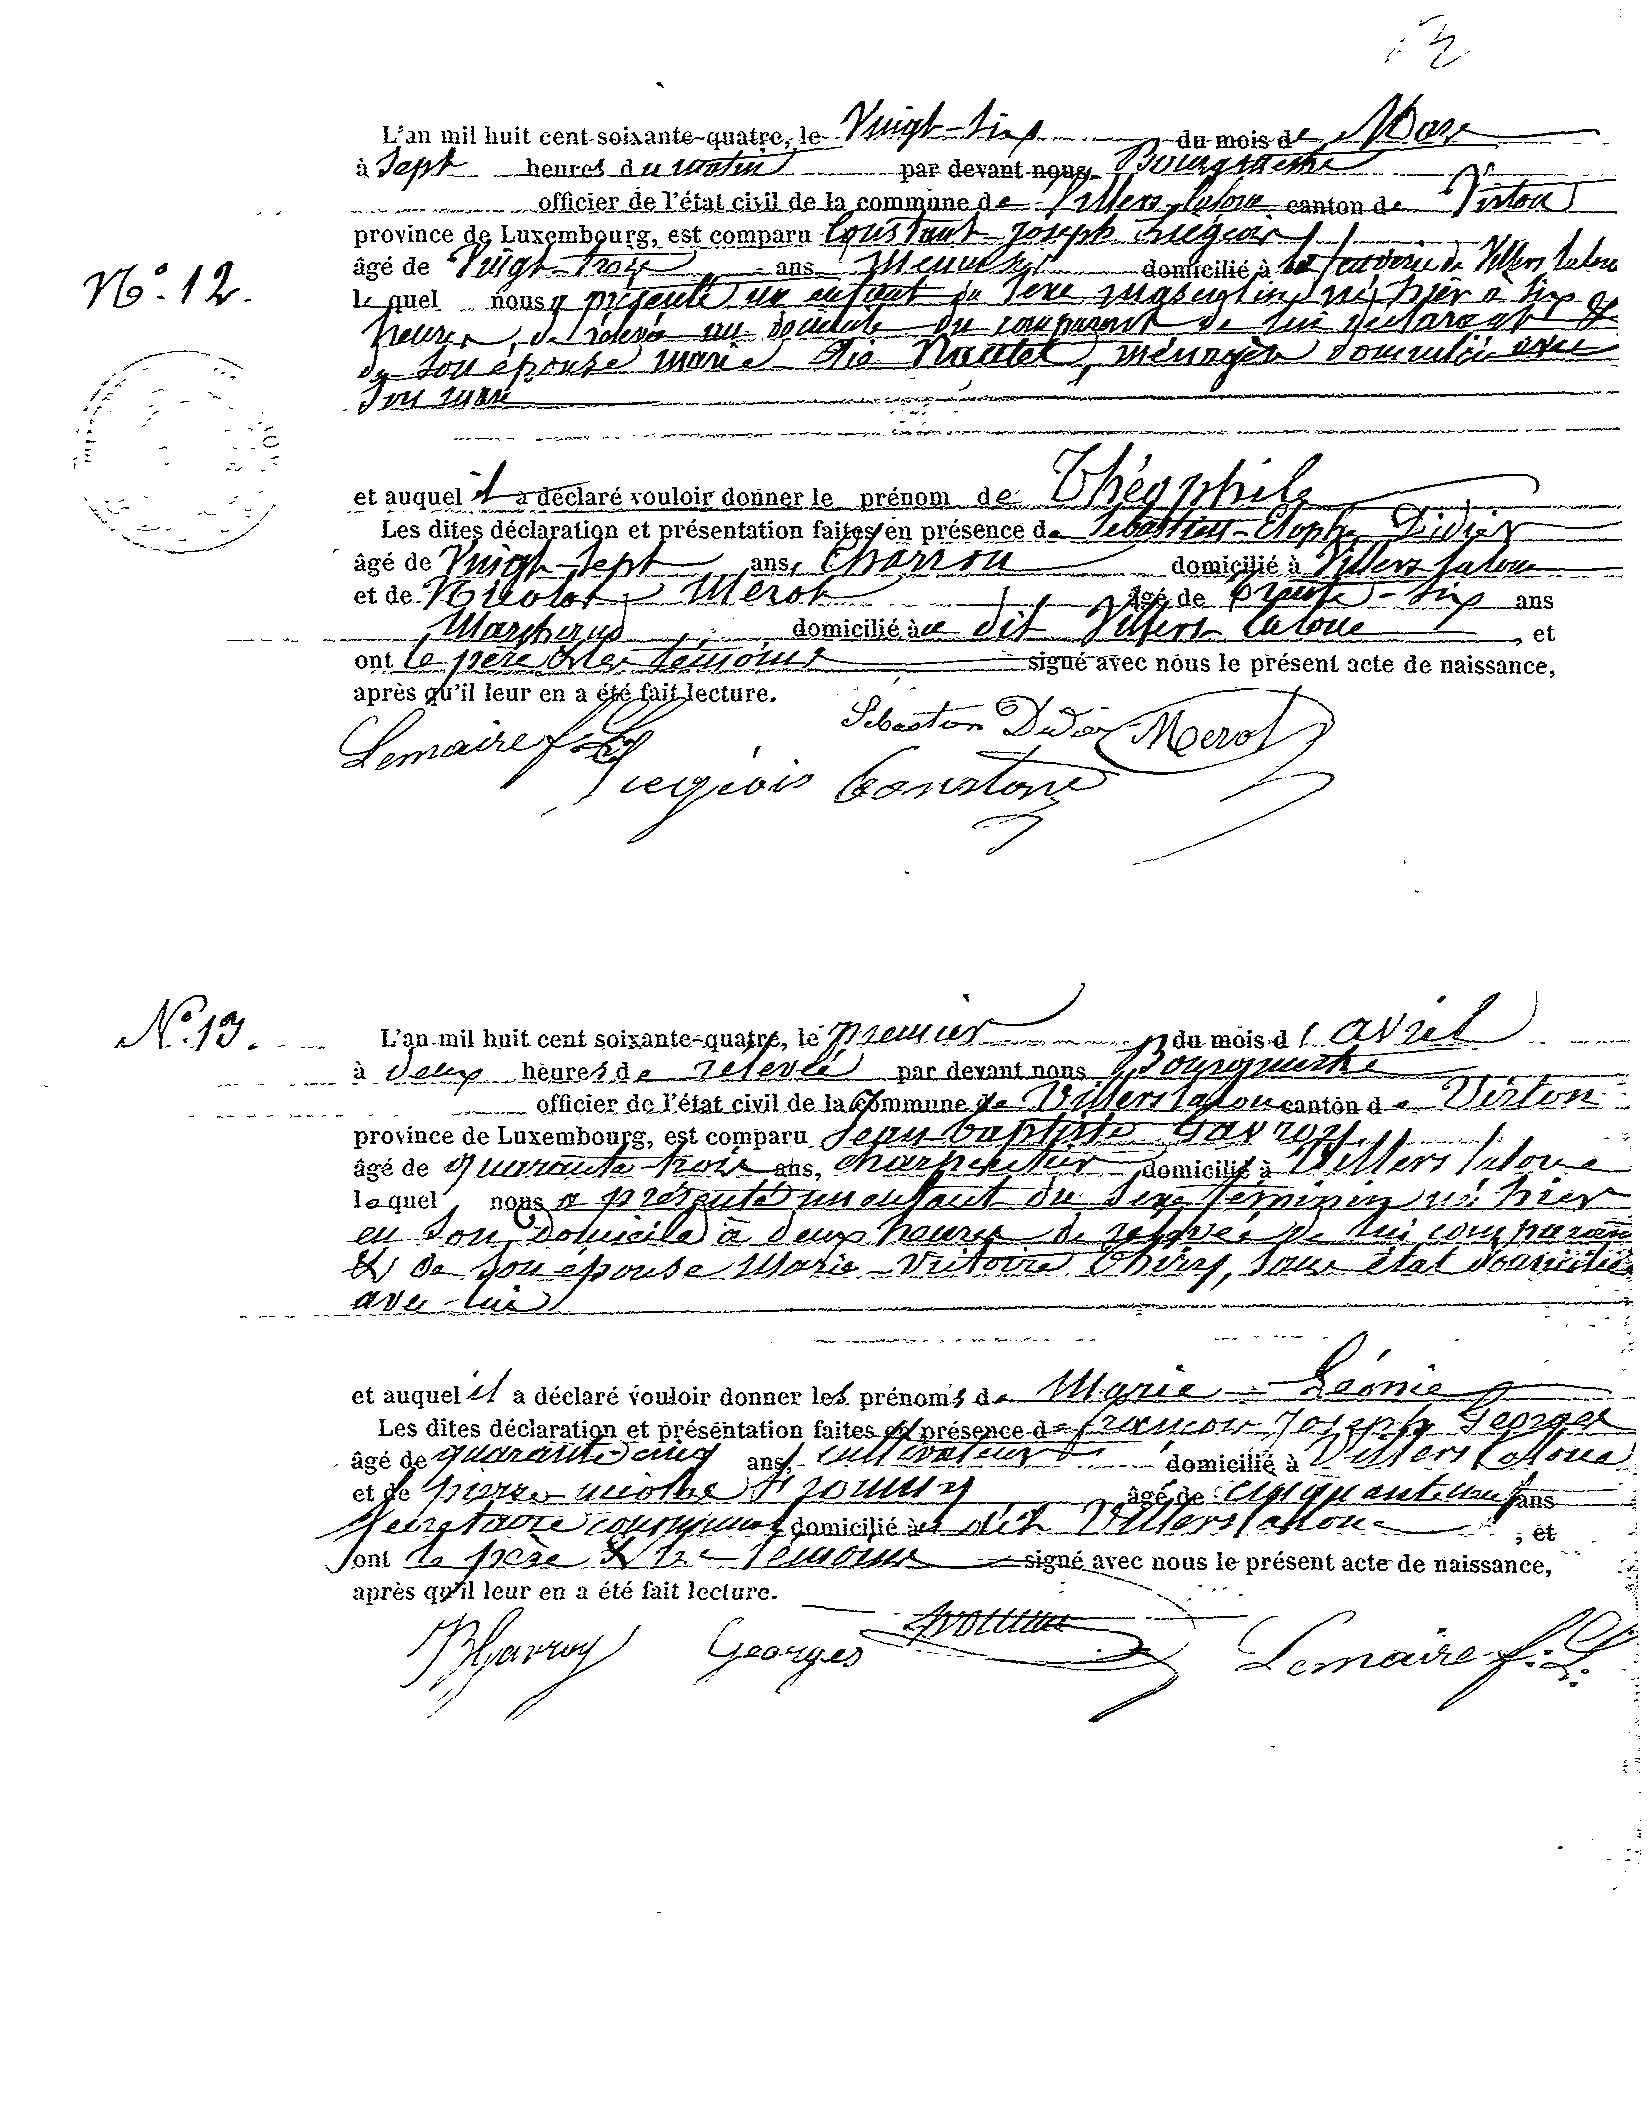 L'an mil huit cent soixante-quatre, le Vingt-six du mois de Mars
à sept heures du matin par devant nous, Bourgmestre
officier de l'état civil de la commune de Villers laloue canton de Virton
province de Luxembourg, est comparu Constant Joseph Liégeois
N° 12. âgé de Vingt-trois ans menuisier domicilié à de Villers laloue
lequel nous a présenté un enfant du sexe masculin, né hier à six
heures de relevée au domicile du comparant de lui déclarant &
de son épouse marie Nautet, ménagère domiciliée avec
son mari
et auquel il a déclaré vouloir donner le prénom de Théophile
Les dites déclaration et présentation faites en présence de Sébastien Didier
âgé de Vingt-sept ans, charron domicilié à Villers laloue
et de Nicolas Merot âgé de trente-six ans
domicilié à dit Villers laloue, et
ont le père & les témoins signé avec nous le présent acte de naissance,
après qu'il leur en a été fait lecture.
Sebastien Didier Merot
Lemaire f: L:
Liegeois Constant
N° 13. L'an mil huit cent soixante-quatre, le premier du mois d'avril
à deux heures de relevée par devant nous Bourgmestre
officier de l'état civil de la commune de Villers laloue canton de Virton
province de Luxembourg, est comparu Jean baptiste Gavroy
âgé de quarante-trois ans, charpentier domicilié à Villers laloue
lequel nous a présenté un enfant du sexe féminin né hier
en son domicile à deux heures de relevée de lui comparant
& de son épouse Marie-Victoire Thiry, sans état domiciliée
avec lui
et auquel il a déclaré vouloir donner les prénoms de Marie-Léonie
Les dites déclaration et présentation faites en présence de françois Joseph Georges
âgé de quarante cinq ans, cultivateur domicilié à Villers laloue
et de pierre nicolas âgé de cinquante neuf ans
secrétaire communal domicilié à dit Villers laloue, et
ont le père & les témoins signé avec nous le présent acte de naissance,
après qu'il leur en a été fait lecture.
JBGavroy Georges Lemaire f: L: